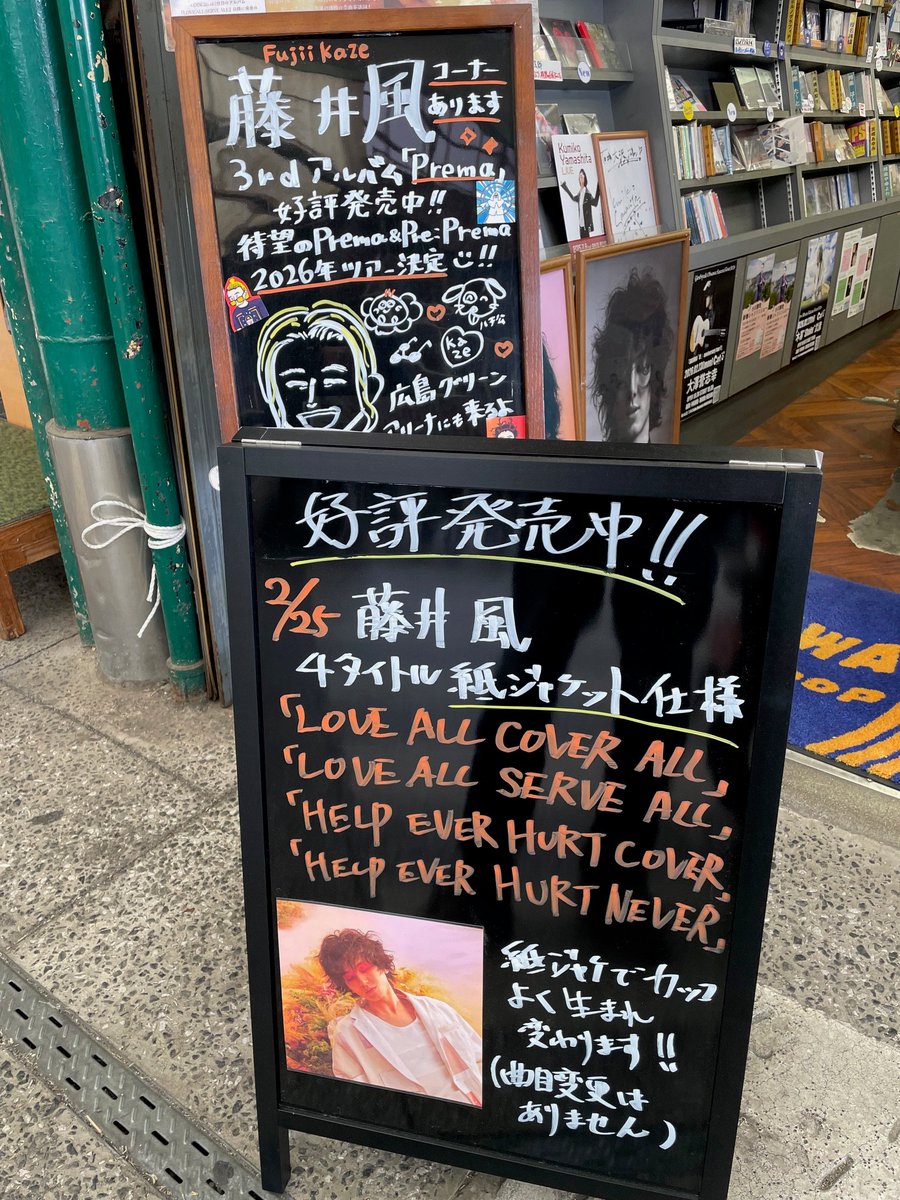 Fujii Kaze
藤井風 コーナー
あります
3rdアルバム「Prema」
好評発売中!!
待望のPrema&Pre:Prema
2026年ツアー決定!!
ハチ公
kaze
広島グリーン
アリーナにも来るよ
Kumiko
Yamashita
LIVE
好評発売中!!
2/25 藤井 風
4タイトル 紙ジャケット仕様
「LOVE ALL COVER ALL」
「LOVE ALL SERVE ALL」
「HELP EVER HURT COVER」
「HELP EVER HURT NEVER」
紙ジャケでカッコ
よく生まれ
変わります!!
(曲目変更は
ありません)
WA